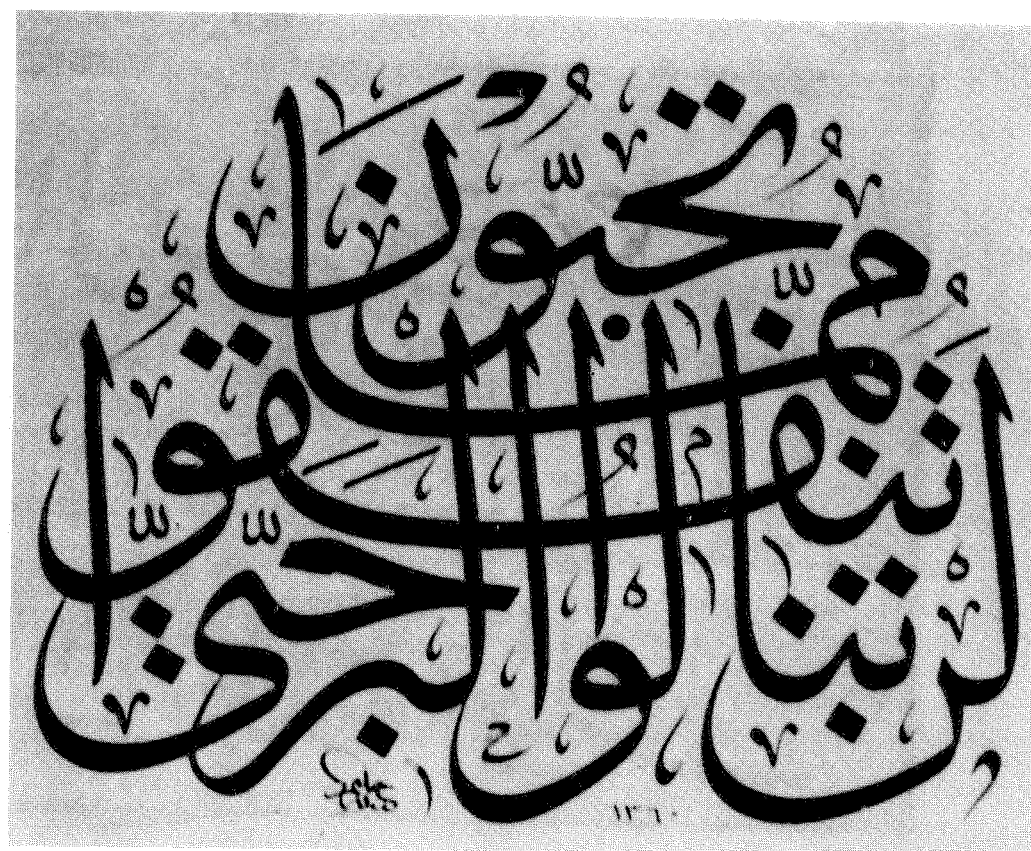 لن تنالوا البر حتى
تنفقوا
مما تحبون
حامد
١٣٦٠